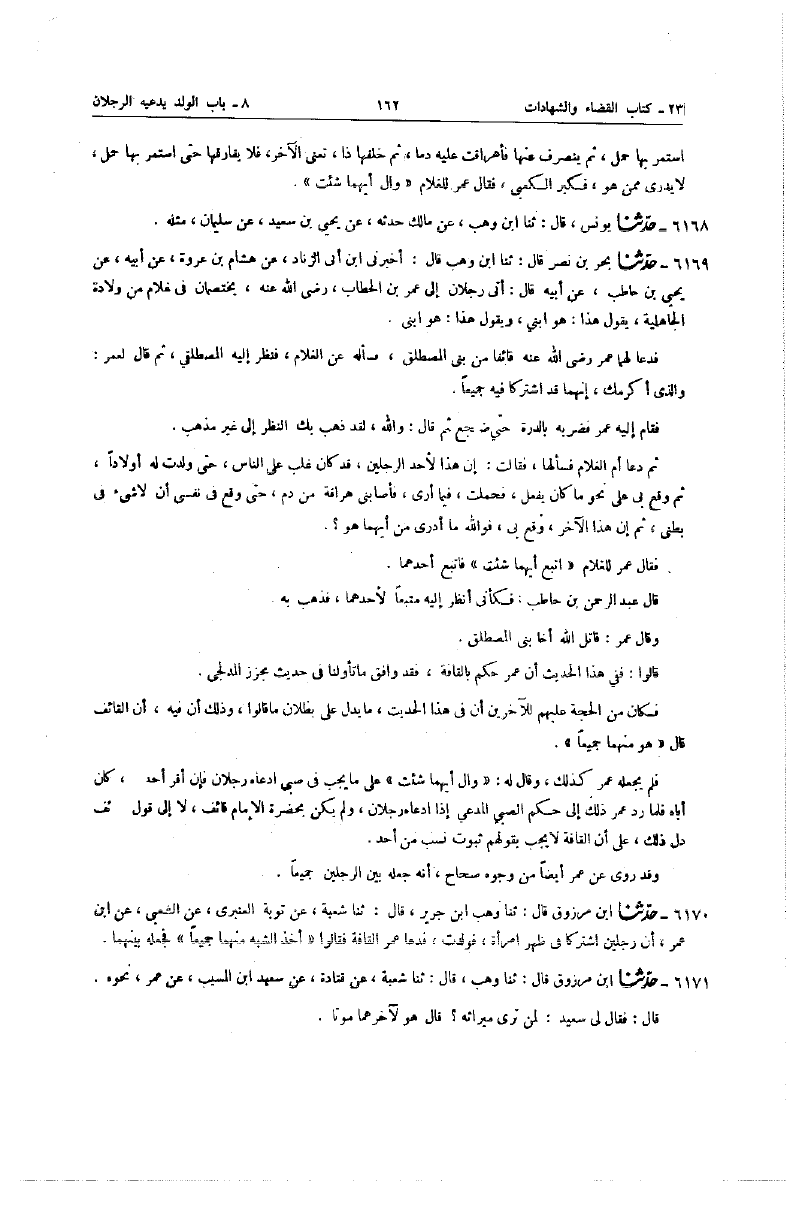 ٢٣ـ كتاب القضاء والشهادات ١٦٢ ٨ـ باب الولد يدعيه الرجلان
استمر بها حمل ، ثم ينصرف عنها فأهراقت عليه دما ، ثم خلفها ذا ، تعنى الآخر، فلا يفارقها حتى استمر بها حمل ،
لايدرى ممن هو ، فكبر الكعبى ، فقال عمر للغلام « وال أيهما شئت » .
٦١٦٨ ـ حدّثنا يونس ، قال : ثنا ابن وهب ، عن مالك حدثه ، عن يحيى بن سعيد ، عن سليمان ، مثله .
٦١٦٩ ـ حدّثنا بحر بن نصر قال : ثنا ابن وهب قال : أخبرنى ابن أبى الزناد ، عن هشام بن عروة ، عن أبيه ، عن
يحيى بن حاطب ، عن أبيه قال : أتى رجلان إلى عمر بن الخطاب ، رضى الله عنه ، يختصمان فى غلام من ولادة
الجاهلية ، يقول هذا : هو ابنى ، ويقول هذا : هو ابنى .
فدعا لهما عمر رضى الله عنه قائفا من بنى المصطلق ، سأله عن الغلام ، فنظر إليه المصطلقي ، ثم قال لعمر :
والذى أكرمك ، إنهما قد اشتركا فيه جميعاً .
فقام إليه عمر فضربه بالدرة حتى ضجع ثم قال : والله ، لقد ذهب بك النظر إلى غير مذهب .
ثم دعا أم الغلام فسألها ، فقالت : إن هذا لأحد الرجلين ، قد كان غلب على الناس ، حتى ولدت له أولاداً ،
ثم وقع بى على نحو ما كان يفعل ، فحملت ، فيما أرى ، فأصابنى هراقة من دم ، حتى وقع فى نفسى أن لاشىء فى
بطنى ، ثم إن هذا الآخر ، وقع بى ، فوالله ما أدرى من أيهما هو ؟ .
فقال عمر للغلام « اتبع أيهما شئت » فاتبع أحدهما .
قال عبدالرحمن بن حاطب : فكأنى أنظر إليه متبعاً لأحدهما ، فذهب به .
وقال عمر : قاتل الله أخا بنى المصطلق .
قالوا : ففى هذا الحديث أن عمر حكم بالقافة ، فقد وافق ماتأولنا فى حديث مجزز المدلجى .
فكان من الحجة عليهم للآخرين أن فى هذا الحديث ، مايدل على بطلان ماقالوا ، وذلك أن فيه ، أن القائف
قال « هو منهما جميعاً » .
فلم يجعله عمر كذلك ، وقال له : « وال أيهما شئت » على مايجب فى صبى ادعاه رجلان فإن أقر أحد ، كان
أباه فلما رد عمر ذلك إلى حكم الصبى المدعى إذا ادعاه رجلان ، ولم يكن بحضرة الإمام قائف ، لا إلى قول ئف
دل ذلك ، على أن القافة لايجب بقولهم ثبوت نسب من أحد .
وقد روى عن عمر أيضاً من وجوه صحاح ، أنه جعله بين الرجلين جميعاً .
٦١٧٠ ـ حدّثنا ابن مرزوق قال : ثنا وهب ابن جرير ، قال : ثنا شعبة ، عن توبة العنبرى ، عن الشعبى ، عن ابن
عمر ، أن رجلين اشتركا فى ظهر امرأة ، فولدت ، فدعا عمر القافة فقالوا « أخذ الشبه منهما جميعاً » فجعله بينهما .
٦١٧١ ـ حدّثنا ابن مرزوق قال : ثنا وهب ، قال : ثنا شعبة ، عن قتادة ، عن سعيد ابن المسيب ، عن عمر ، نحوه .
قال : فقال لى سعيد : لمن ترى ميراثه ؟ قال هو لآخرهما موتا .